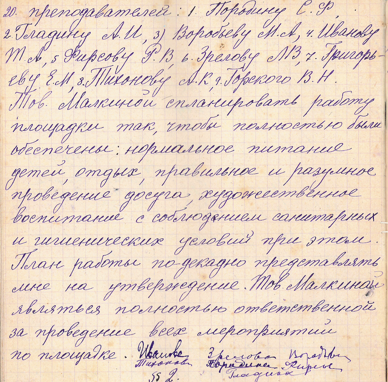 20 преподавателей: 1 Порывину Е.Ф.
2. Гладину А.И, 3) Воробьеву М.А, 4. Иванову
Т А, 5 Фирсову Р.В 6. Зрелову Л.В 7. Григорь-
еву Е.М 8. Тихонову А.К 9. Горского В.Н.
Тов. Малкиной спланировать работу
площадки так, чтобы полностью были
обеспечены: нормальное питание
детей, отдых, правильное и разумное
проведение досуга, художественное
воспитание с соблюдением санитарных
и гигиенических условий при этом.
План работы подекадно представлять
мне на утверждение. Тов Малкиной
являться полностью ответственной
за проведение всех мероприятий
по площадке. Иванова Зрелова
Тихонова
Гладина
§§ 2.